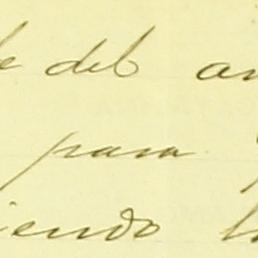 de del an
para
iendo